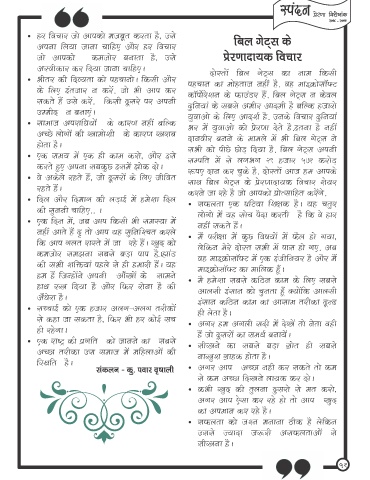 स्पंदन प्रेरणा विशेषांक
• हर विचार जो आपको मजबूत करता है, उसे
अपना लिया जाना चाहिए और हर विचार
जो आपको कमजोर बनाता है, उसे
अस्वीकार कर दिया जाना चाहिए।
• भीतर की दिव्यता को पहचानो। किसी और
के लिए इंतजार न करें, जो भी आप कर
सकते हैं उसे करें, किसी दूसरे पर अपनी
उम्मीद न बनाएं।
• सामाज अपराधियों के कारण नहीं बल्कि
अच्छे लोगों की खामोशी के कारण खराब
होता है।
• एक समय में एक ही काम करो, और इसे
करते हुए अपना सबकुछ इसमें झोंक दो।
• वे अकेले रहते हैं, जो दूसरों के लिए जीवित
रहते हैं।
• दिल और दिमाग की लड़ाई में हमेशा दिल
की सुननी चाहिए,. ।
• एक दिन में, जब आप किसी भी समस्या में
नहीं आते हैं दु तो आप यह सुनिश्चित करले
कि आप गलत रास्ते में जा रहे हैं। खुद को
कमजोर समझना सबसे बड़ा पाप है.
की सभी शक्तियां पहले से ही हमारी हैं। यह
हम हैं जिन्होंने अपनी आँखों के सामने
हाथ रख दिया है और फिर रोना है की
अँधेरा है।
• सच्चाई को एक हजार अलग-अलग तरीकों
से कहा जा सकता है, फिर भी हर कोई सच
ही रहेगा।
• एक राष्ट्र की प्रगति को जानने का सबसे
अच्छा तरीका उस समाज में महिलाओं की
स्थिति है।
संकलन - कु. पवार वृषाली
बिल गेट्स के
प्रेरणादायक विचार
दोस्तों बिल गेट्स का नाम किसी
पहचान का मोहताज नहीं है, वह माइक्रोसॉफ्ट
कॉर्पोरेशन के फाउंडर हैं, बिल गेट्स न केवल
दुनियां के सबसे अमीर आदमी है बल्कि हजारो
युवाओ के लिए आदर्श है, उनके विचार दुनियां
भर में युवाओं को प्रेरणा देते है.इतना हे नहीं
दानवीर बनने के मामले में भी बिल गेट्स ने
सभी को पीछे छोड़ दिया है, बिल गेट्स अपनी
सम्पति में से लगभग २९ हजार ५७१ करोड
रूपए दान कर चुके है, दोस्तों आज हम आपके
साथ बिल गेट्स के प्रेरणादायक विचार शेयर
करने जा रहे है जो आपको प्रोत्साहित करेंगे.
• सफलता एक घटिया शिक्षक है। यह चतुर
लोगों में यह सोच पैदा करती है कि वे हार
नहीं सकते हैं।
• मैं परीक्षा में कुछ विषयों में फ़ेल हो गया,
लेकिन मेरे दोस्त सभी में पास हो गए, अब
वह माइक्रोसॉफ्ट में एक इंजीनियर है और में
माइक्रोसॉफ्ट का मालिक हूँ।
• मैं हमेशा सबसे कठिन काम के लिए सबसे
आलसी इंसान को चुनता हूँ क्योंकि आलसी
इंसान कठिन काम का आसाम तरीका ढूंढ
ही लेता है।
• अगर हम अगली सदी में देखें तो नेता वही
हैं जो दूसरों का समर्थ बनायें।
• सीखने का सबसे बड़ा स्रोत ही सबसे
नाखुश ग्राहक होता है।
• अगर आप अच्छा नहीं कर सकते तो कम
से कम अच्छा दिखने लायक कर दो।
• कभी खुद की तुलना दूसरो से मत करो,
अगर आप ऐसा कर रहे हो तो आप खुद
का अपमान कर रहे है।
• सफलता को जश्न मनाना ठीक है लेकिन
उससे ज्यादा जरूरी असफलताओं से
सीखना है।